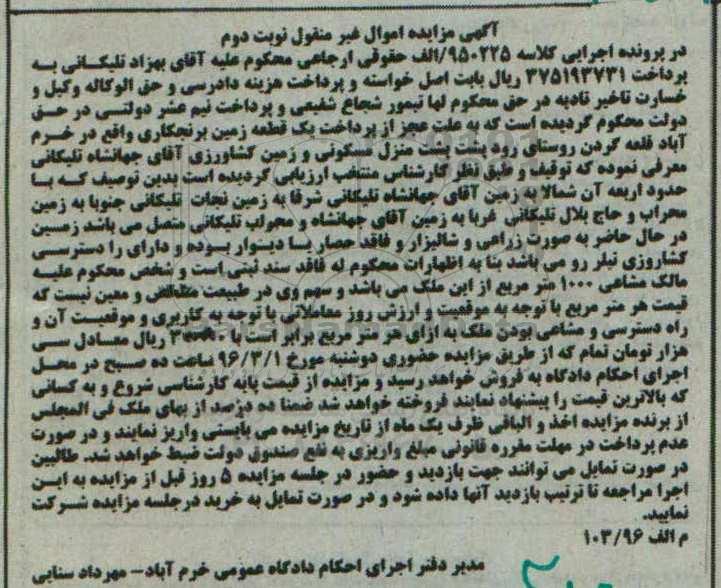 آگهی مزایده اموال غیر منقول نوبت دوم
در پرونده اجرایی کلاسه ۹۵۰۲۲۵/الف حقوقی ارجاعی محکوم علیه آقای بهزاد تلیکانی به
پرداخت ۳۷۵۱۹۳۷۳۱ ریال بابت اصل خواسته و پرداخت هزینه دادرسی و حق الوکاله وکیل و
خسارت تاخیر تادیه در حق محکوم لها تیمور شجاع شفیعی و پرداخت نیم عشر دولتی در حق
دولت محکوم گردیده است که به علت عجز از پرداخت یک قطعه زمین برنجکاری واقع در خرم
آباد قلعه گردن روستای رود پشت پشت منزل مسکونی و زمین کشاورزی آقای جهانشاه تلیکانی
معرفی نموده که توقیف و طبق نظر کارشناس منتخب ارزیابی گردیده است بدین توصیف که با
حدود اربعه آن شمالا به زمین آقای جهانشاه تلیکانی شرقا به زمین نجات تلیکانی جنوبا به زمین
محراب و حاج بلال تلیکانی غربا به زمین آقای جهانشاه و محراب تلیکانی متصل می باشد زمین
در حال حاضر به صورت زراعی و شالیزار و فاقد حصار یا دیوار بوده و دارای راه دسترسی
کشاروزی تیلر رو می باشد بنا به اظهارات محکوم له فاقد سند ثبتی است و شخص محکوم علیه
مالک مشاعی ۱۰۰۰ متر مربع از این ملک می باشد و سهم وی در طبیعت مشخص و معین نیست که
قیمت هر متر مربع با توجه به موقعیت و ارزش روز معاملاتی با توجه به کاربری و موقعیت آن و
راه دسترسی و مشاعی بودن ملک به ازای هر متر مربع برابر است با ۳۰۰۰۰۰ ریال معادل سی
هزار تومان تمام که از طریق مزایده حضوری دوشنبه مورخ ۹۶/۳/۱ ساعت ده صبح در محل
اجرای احکام دادگاه به فروش خواهد رسید و مزایده از قیمت پایه کارشناسی شروع و به کسانی
که بالاترین قیمت را پیشنهاد نمایند فروخته خواهد شد ضمنا ده درصد از بهای ملک فی المجلس
از برنده مزایده اخذ و الباقی ظرف یک ماه از تاریخ مزایده می بایستی واریز نمایند و در صورت
عدم پرداخت در مهلت مقرره قانونی مبلغ واریزی به نفع صندوق دولت ضبط خواهد شد. طالبین
در صورت تمایل می توانند جهت بازدید و حضور در جلسه مزایده ۵ روز قبل از مزایده به این
اجرا مراجعه تا ترتیب بازدید آنها داده شود و در صورت تمایل به خرید درجلسه مزایده شرکت
نمایید.
م الف ۱۰۳/۹۶
مدیر دفتر اجرای احکام دادگاه عمومی خرم آباد- مهرداد سنایی